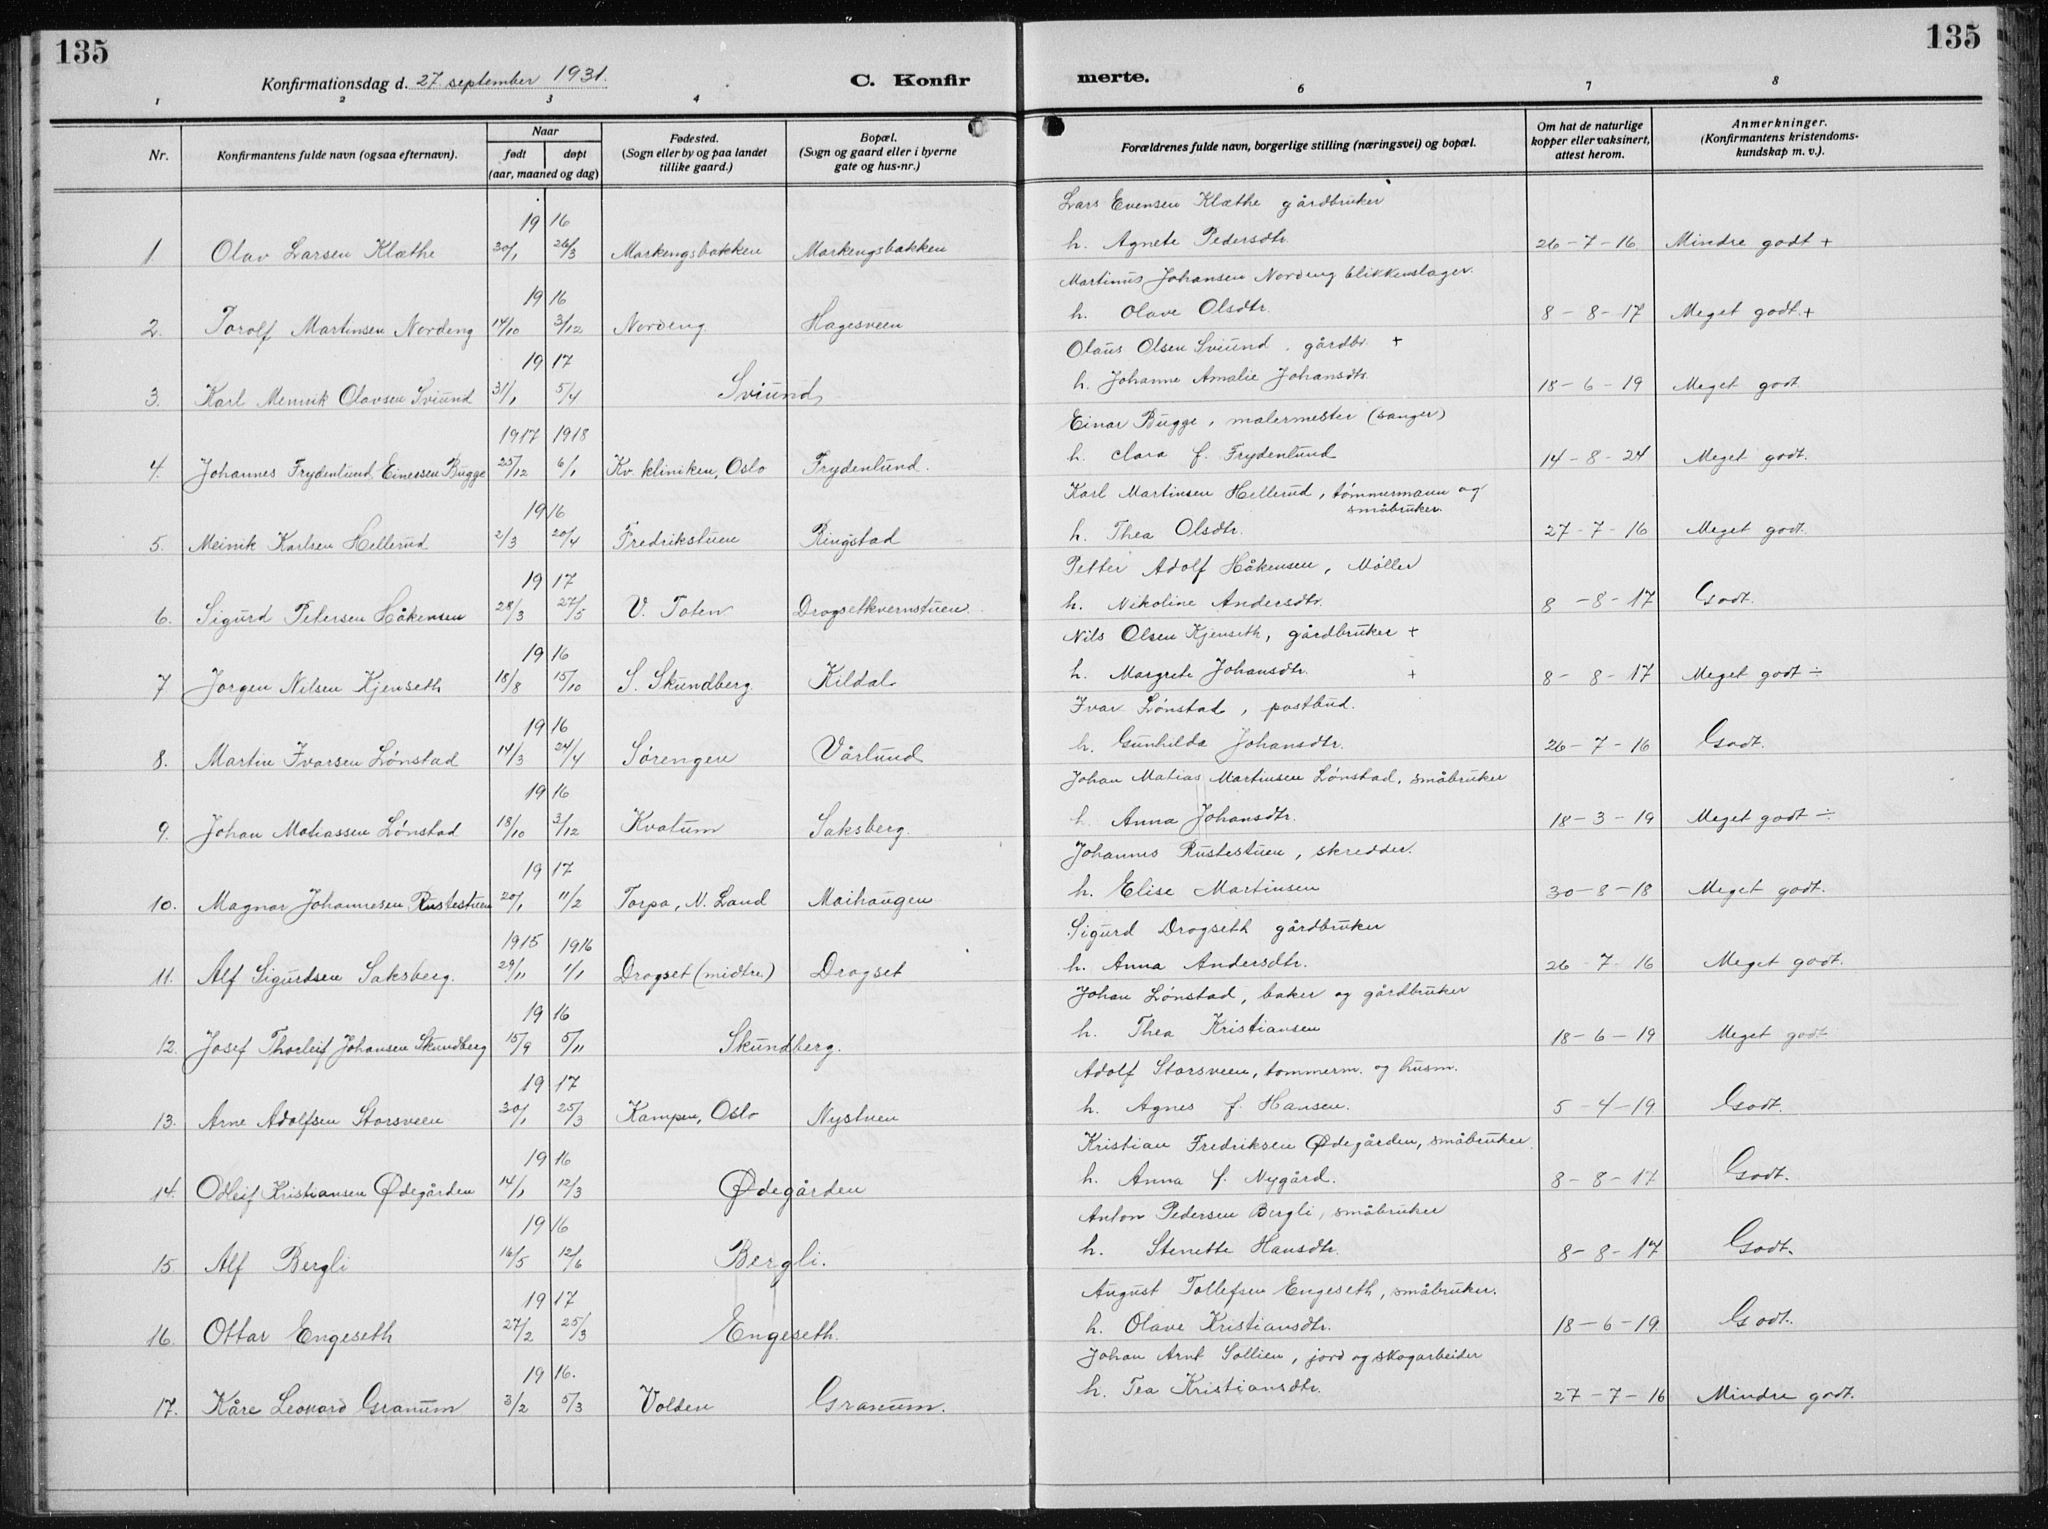 135
135
Konfirmationsdag d. 27 september 1931.
C. Konfir
merte.
1 2 3 4 6 7 8
Nr.
Konfirmantens fulde navn (ogsaa efternavn).
Naar
født døpt
(aar, maaned og dag)
Fødested.
(Sogn eller by og paa landet
tillike gaard.)
Bopæl.
(Sogn og gaard eller i byerne
gate og hus-nr.)
Forældrenes fulde navn, borgerlige stilling (næringsvei) og bopæl.
Om hat de naturlige
kopper eller vaksinert,
attest herom.
Anmerkninger.
(Konfirmantens kristendoms-
kundskap m. v.).
19 16 Lars Evensen Klæthe gårdbruker
1 Olav Larsen Klæthe 30/1 26/3 Markengsbakken Markengsbakken h. Agnete Pedersdtr. 26-7-16 Mindre godt +
19 16 Martinus Johansen Nordeng blikkenslager.
2. Torolf Martinsen Nordeng 14/10 3/12 Nordeng Hagesveen h. Olave Olsdtr. 8-8-17 Meget godt +
19 17 Olaus Olsen Sviund. gårdbr. +
3. Karl Mennik Olavsen Sviund 31/1 5/4 Sviund h. Johanne Amalie Johansdtr. 18-6-19 Meget godt
1917 1918 Einar Bugge, malermester (sanger)
4. Johannes Frydenlund Einersen Bugge 25/12 6/1 Kv. kliniken, Oslo Frydenlund. h. Clara f. Frydenlund 14-8-24 Meget godt.
19 16 Karl Martinsen Hellerud, tømmermann og
småbruker.
5. Meinik Karlsen Hellerud 2/3 20/4 Fredrikstuen Ringstad h. Thea Olsdtr. 27-7-16 Meget godt.
19 17 Petter Adolf Håkensen, Møller
6. Sigurd Petersen Håkensen 28/3 27/5 V. Toten Drogsetkvernstuen. h. Nikoline Andersdtr. 8-8-17 Godt.
19 16 Nils Olsen Kjenseth, gårdbruker +
7 Jørgen Nilsen Kjenseth 18/8 15/10 S. Skundberg. Kildal. h. Margrete Johansdtr. + 8-8-17 Meget godt ÷
19 16 Ivar Lønstad, postbud.
8. Martin Ivarsen Lønstad 14/3 24/4 Sørengen Vårlund h. Gunhilda Johansdtr. 26-7-16 Godt.
19 16 Johan Matias Martinsen Lønstad, småbruker
9. Johan Matiassen Lønstad 18/10 3/12 Kvatum Saksberg. h. Anna Johansdtr. 18-3-19 Meget godt ÷
19 17 Johannes Rustestuen, skredder.
10. Magnar Johannesen Rustestuen 20/1 11/2 Torpa, N. Land Maihaugen h. Elise Martinsen 30-8-18 Meget godt.
1915 1916 Sigurd Drogseth gårdbruker
11. Alf Sigurdsen Saksberg. 29/11 1/1 Drogset (midtre.) Drogset h. Anna Andersdtr. 26-7-16 Meget godt.
19 16 Johan Lønstad, baker og gårdbruker
12. Josef Thorleif Johansen Skundberg 15/9 5/11 Skundberg. h. Thea Kristiansen 18-6-19 Meget godt
19 17 Adolf Storsveen, tømmerm. og husm.
13. Arne Adolfsen Storsveen 30/1 25/3 Kampen, Oslo Nystuen h. Agnes f. Hansen. 5-4-19 Godt.
19 16 Kristian Fredriksen Ødegården, småbruker
14. Odleif Kristiansen Ødegården 14/1 12/3 Ødegården h. Anna f. Nygård. 8-8-17 Godt.
19 16 Anton Pedersen Bergli, småbruker
15. Alf Bergli 16/5 12/6 Bergli. h. Stenette Hansdtr. 8-8-17 Godt.
19 17 August Tollefsen Engeseth, småbruker.
16. Ottar Engeseth 27/2 25/3 Engeseth. h. Olave Kristiansdtr. 18-6-19. Godt.
19 16. Johan Arnt Sollien, jord og skogarbeider
17. Kåre Leonard Granum 3/2 5/3 Volden Granum. h. Tea Kristiansdtr. 27-7-16 Mindre godt.